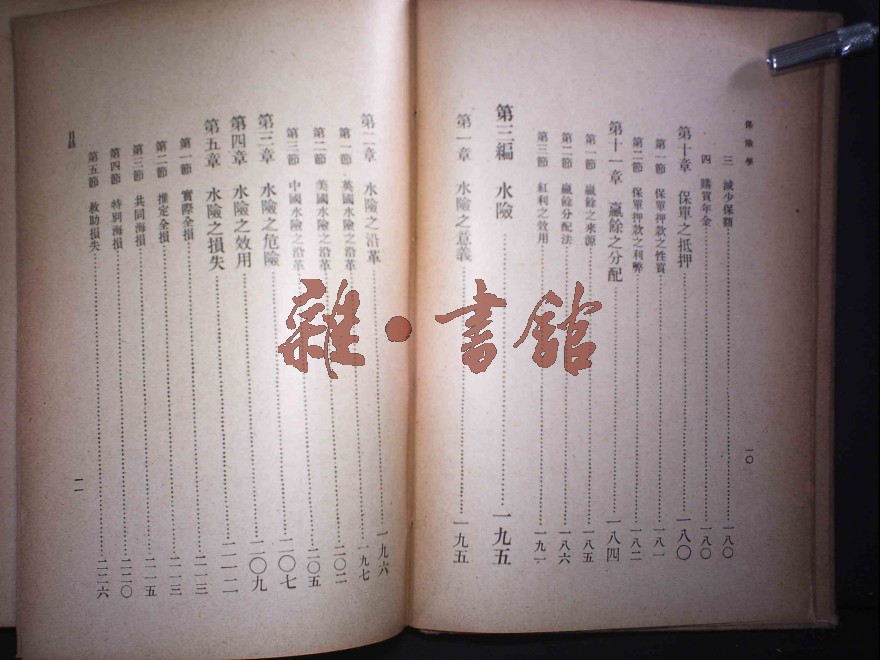 保險學
三 減少保額 一八〇
四 購買年金 一八〇
第十章 保單之抵押 一八〇
第一節 保單押款之性質 一八一
第二節 保單押款之利弊 一八二
第十一章 贏餘之分配 一八四
第一節 贏餘之來源 一八五
第二節 贏餘分配法 一八六
第三節 紅利之效用 一九一
第三編 水險 一九五
第一章 水險之意義 一九五
一〇
第二章 水險之沿革 一九六
第一節 英國水險之沿革 一九七
第二節 美國水險之沿革 二〇二
第三節 中國水險之沿革 二〇五
第三章 水險之危險 二〇七
第四章 水險之效用 二〇九
第五章 水險之損失 二一二
第一節 實際全損 二一三
第二節 推定全損 二一三
第三節 共同海損 二一五
第四節 特別海損 二二〇
第五節 救助損失 二二六
目錄
一一
雜·書館